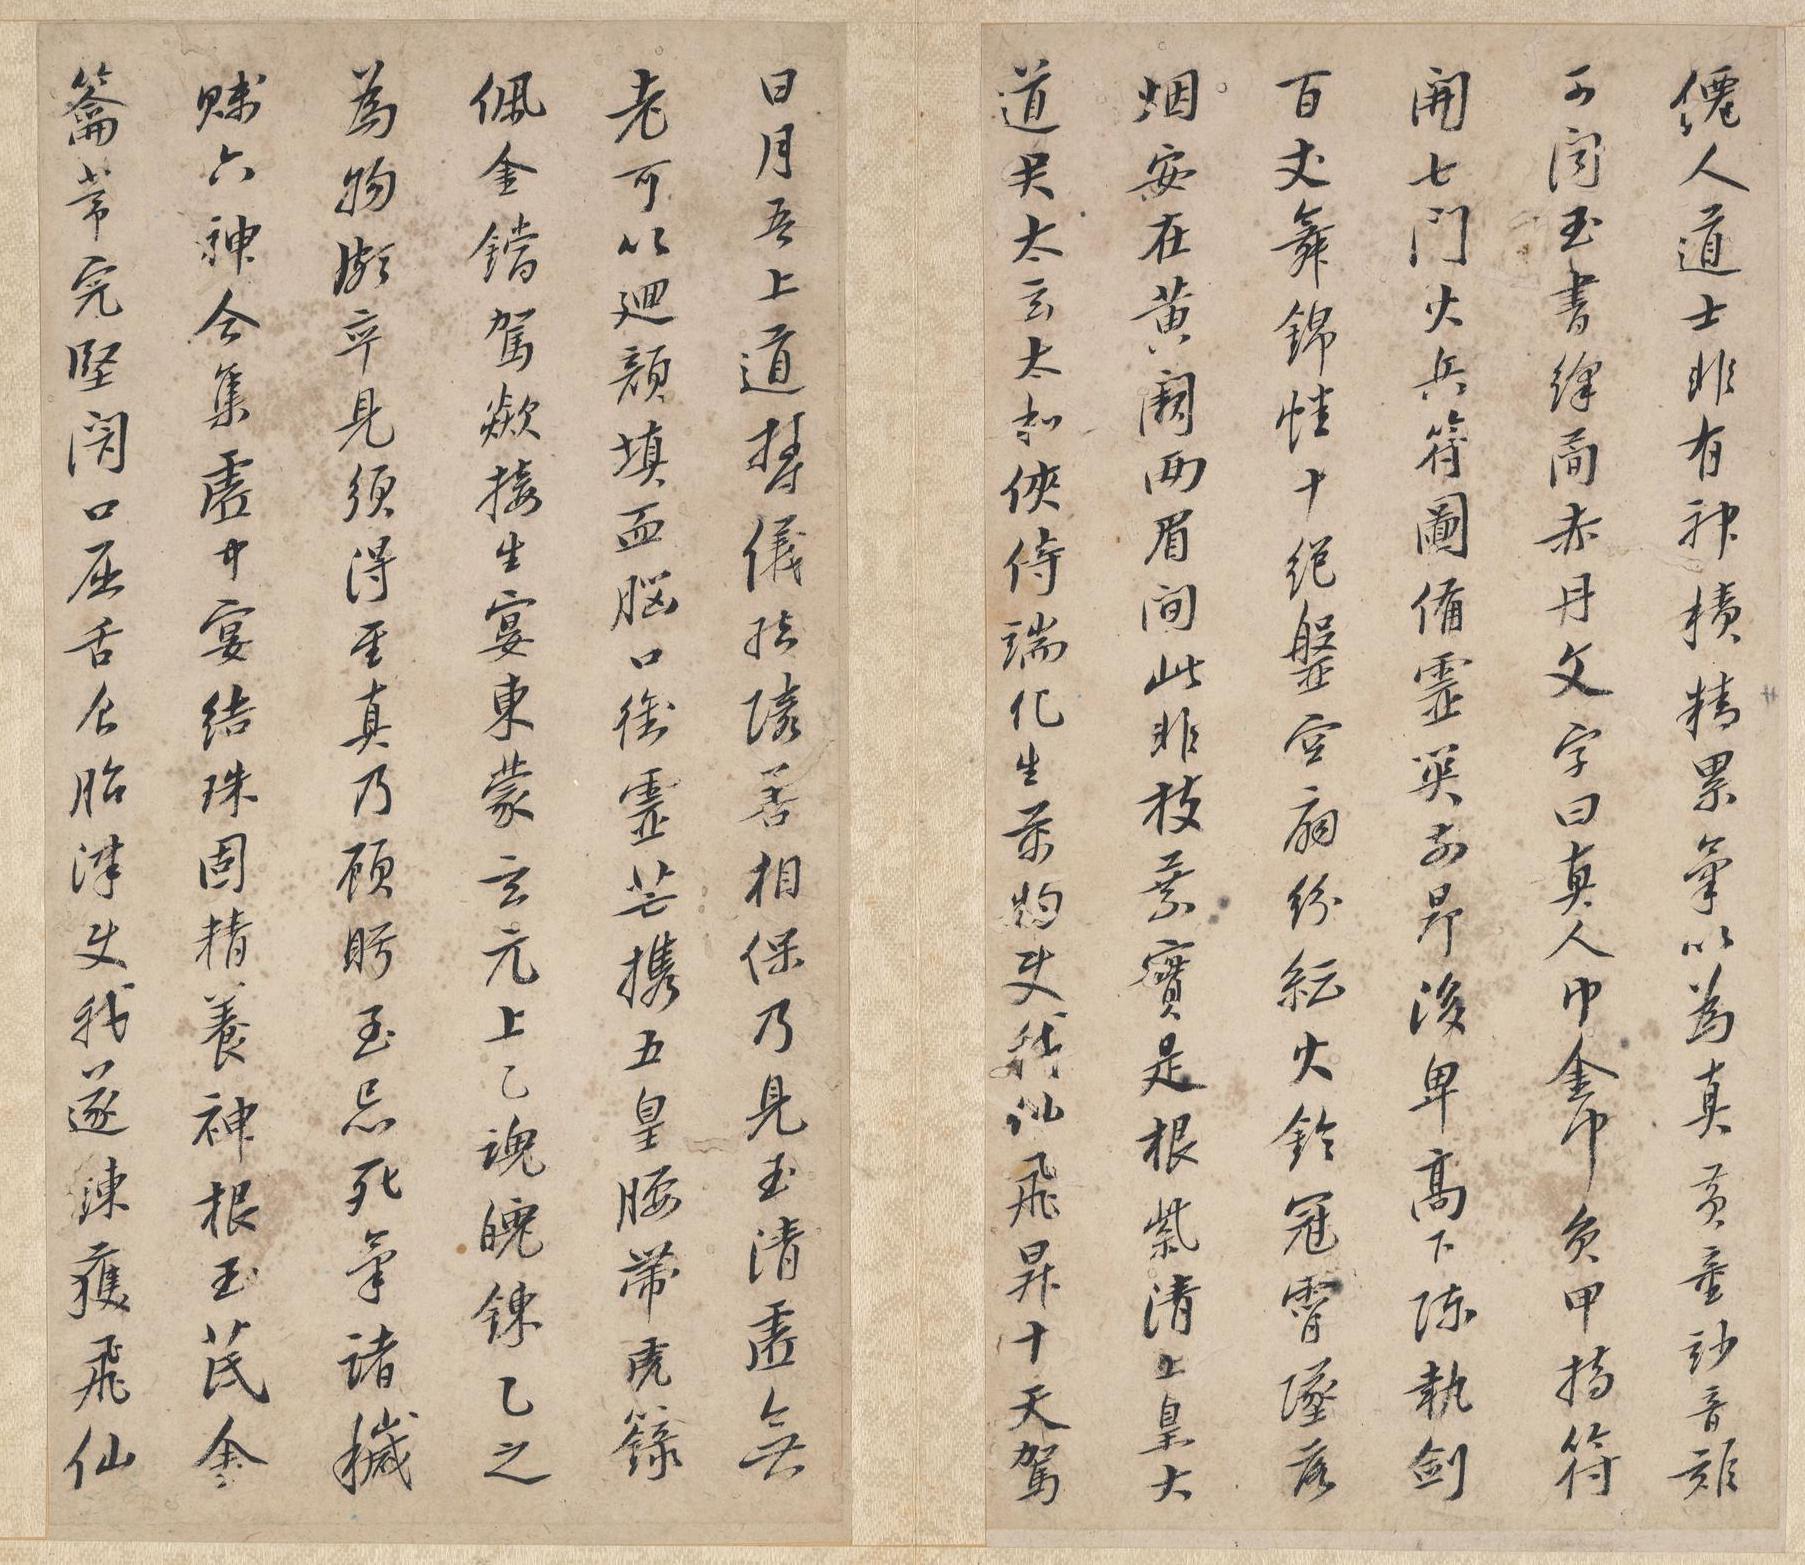 僊人道士非有神積精累氣以為真黃童妙音難
可聞玉書絳簡赤丹文字曰真人巾金巾負甲持符
開七門火兵符圖備靈關前昂後卑高下陳執劍
百丈舞錦幡十絕盤空扇紛紜火鈴冠霄墜落
烟安在黃闕兩眉間此非枝葉實是根紫清上皇大
道君太玄太和俠侍端化生萬物使我仙飛昇十天駕
日月吾上道 儀 善相保乃見玉清虛無
老可以迴顏填血腦口銜靈芒攜五皇腰帶虎籙
佩金鐺駕欻接生宴東蒙玄元上乙魂魄鍊乙之
為物頗卒見須得至真乃顧盻至忌死氣諸穢
賤六神合集虛中宴結珠固精養神根玉芪金
籥常完堅閉口屈舌食胎津使我遂鍊獲飛仙